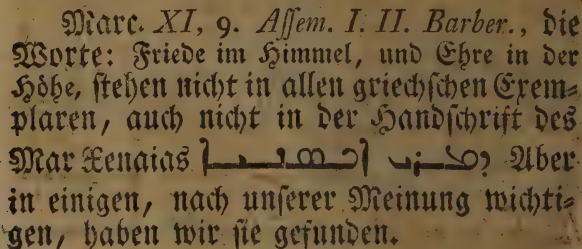 Marc. XI, 9. Assem. I. II. Barber., die
Worte: Friede im Himmel, und Ehre in der
Höhe, stehen nicht in allen griechschen Exem⸗
plaren, auch nicht in der Handschrift des
Mar Xenaias ܕܡܪܝ ܐܟܣܢܝܐ Aber
in einigen, nach unserer Meinung wichti⸗
gen, haben wir sie gefunden.